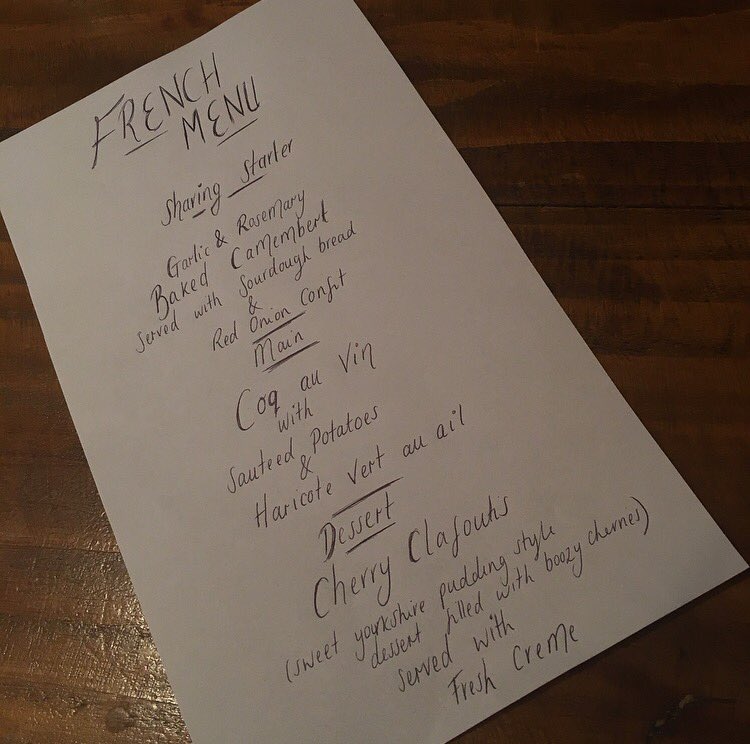 FRENCH
MENU
Sharing Starter
Garlic & Rosemary
Baked Camembert
Served with Sourdough bread
&
Red Onion Confit
Main
Coq au Vin
with
Sauteed Potatoes
&
Haricote Vert au ail
Dessert
Cherry Clafoutis
(sweet yourkshire pudding style
dessert filled with boozy cherries)
served with
Fresh Creme